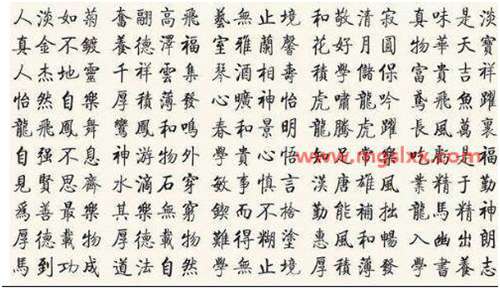 人淡如菊 奮翮高飛 藝無止境 和敬清寂 真味是淡
真金不鍍 養德澤福 室雅蘭馨 花好月圓 物華天寶
人杰地靈 千祥雲集 琴酒相壽 積學儲保 富貴吉祥
怡然自樂 厚積薄發 曠神怡 虎嘯龍吟 鳶飛魚躍
龍飛鳳舞 鸞鳳和鳴 春和景明 龍騰虎躍 長風萬裏
自强不息 神游物外 學貴心悟 足常樂 是福
見賢思齊 水滴石穿 敏事慎言 漢唐雄風 業精于勤
爲善最樂 其樂無窮 鍥而不捨 勤能補拙 龍馬精神
厚德載物 厚德載物 難得糊塗 惠風和暢 入幽出朗
馬到功成 道法自然 學無止境 厚積薄發 學書養志
www.mgslxx.com